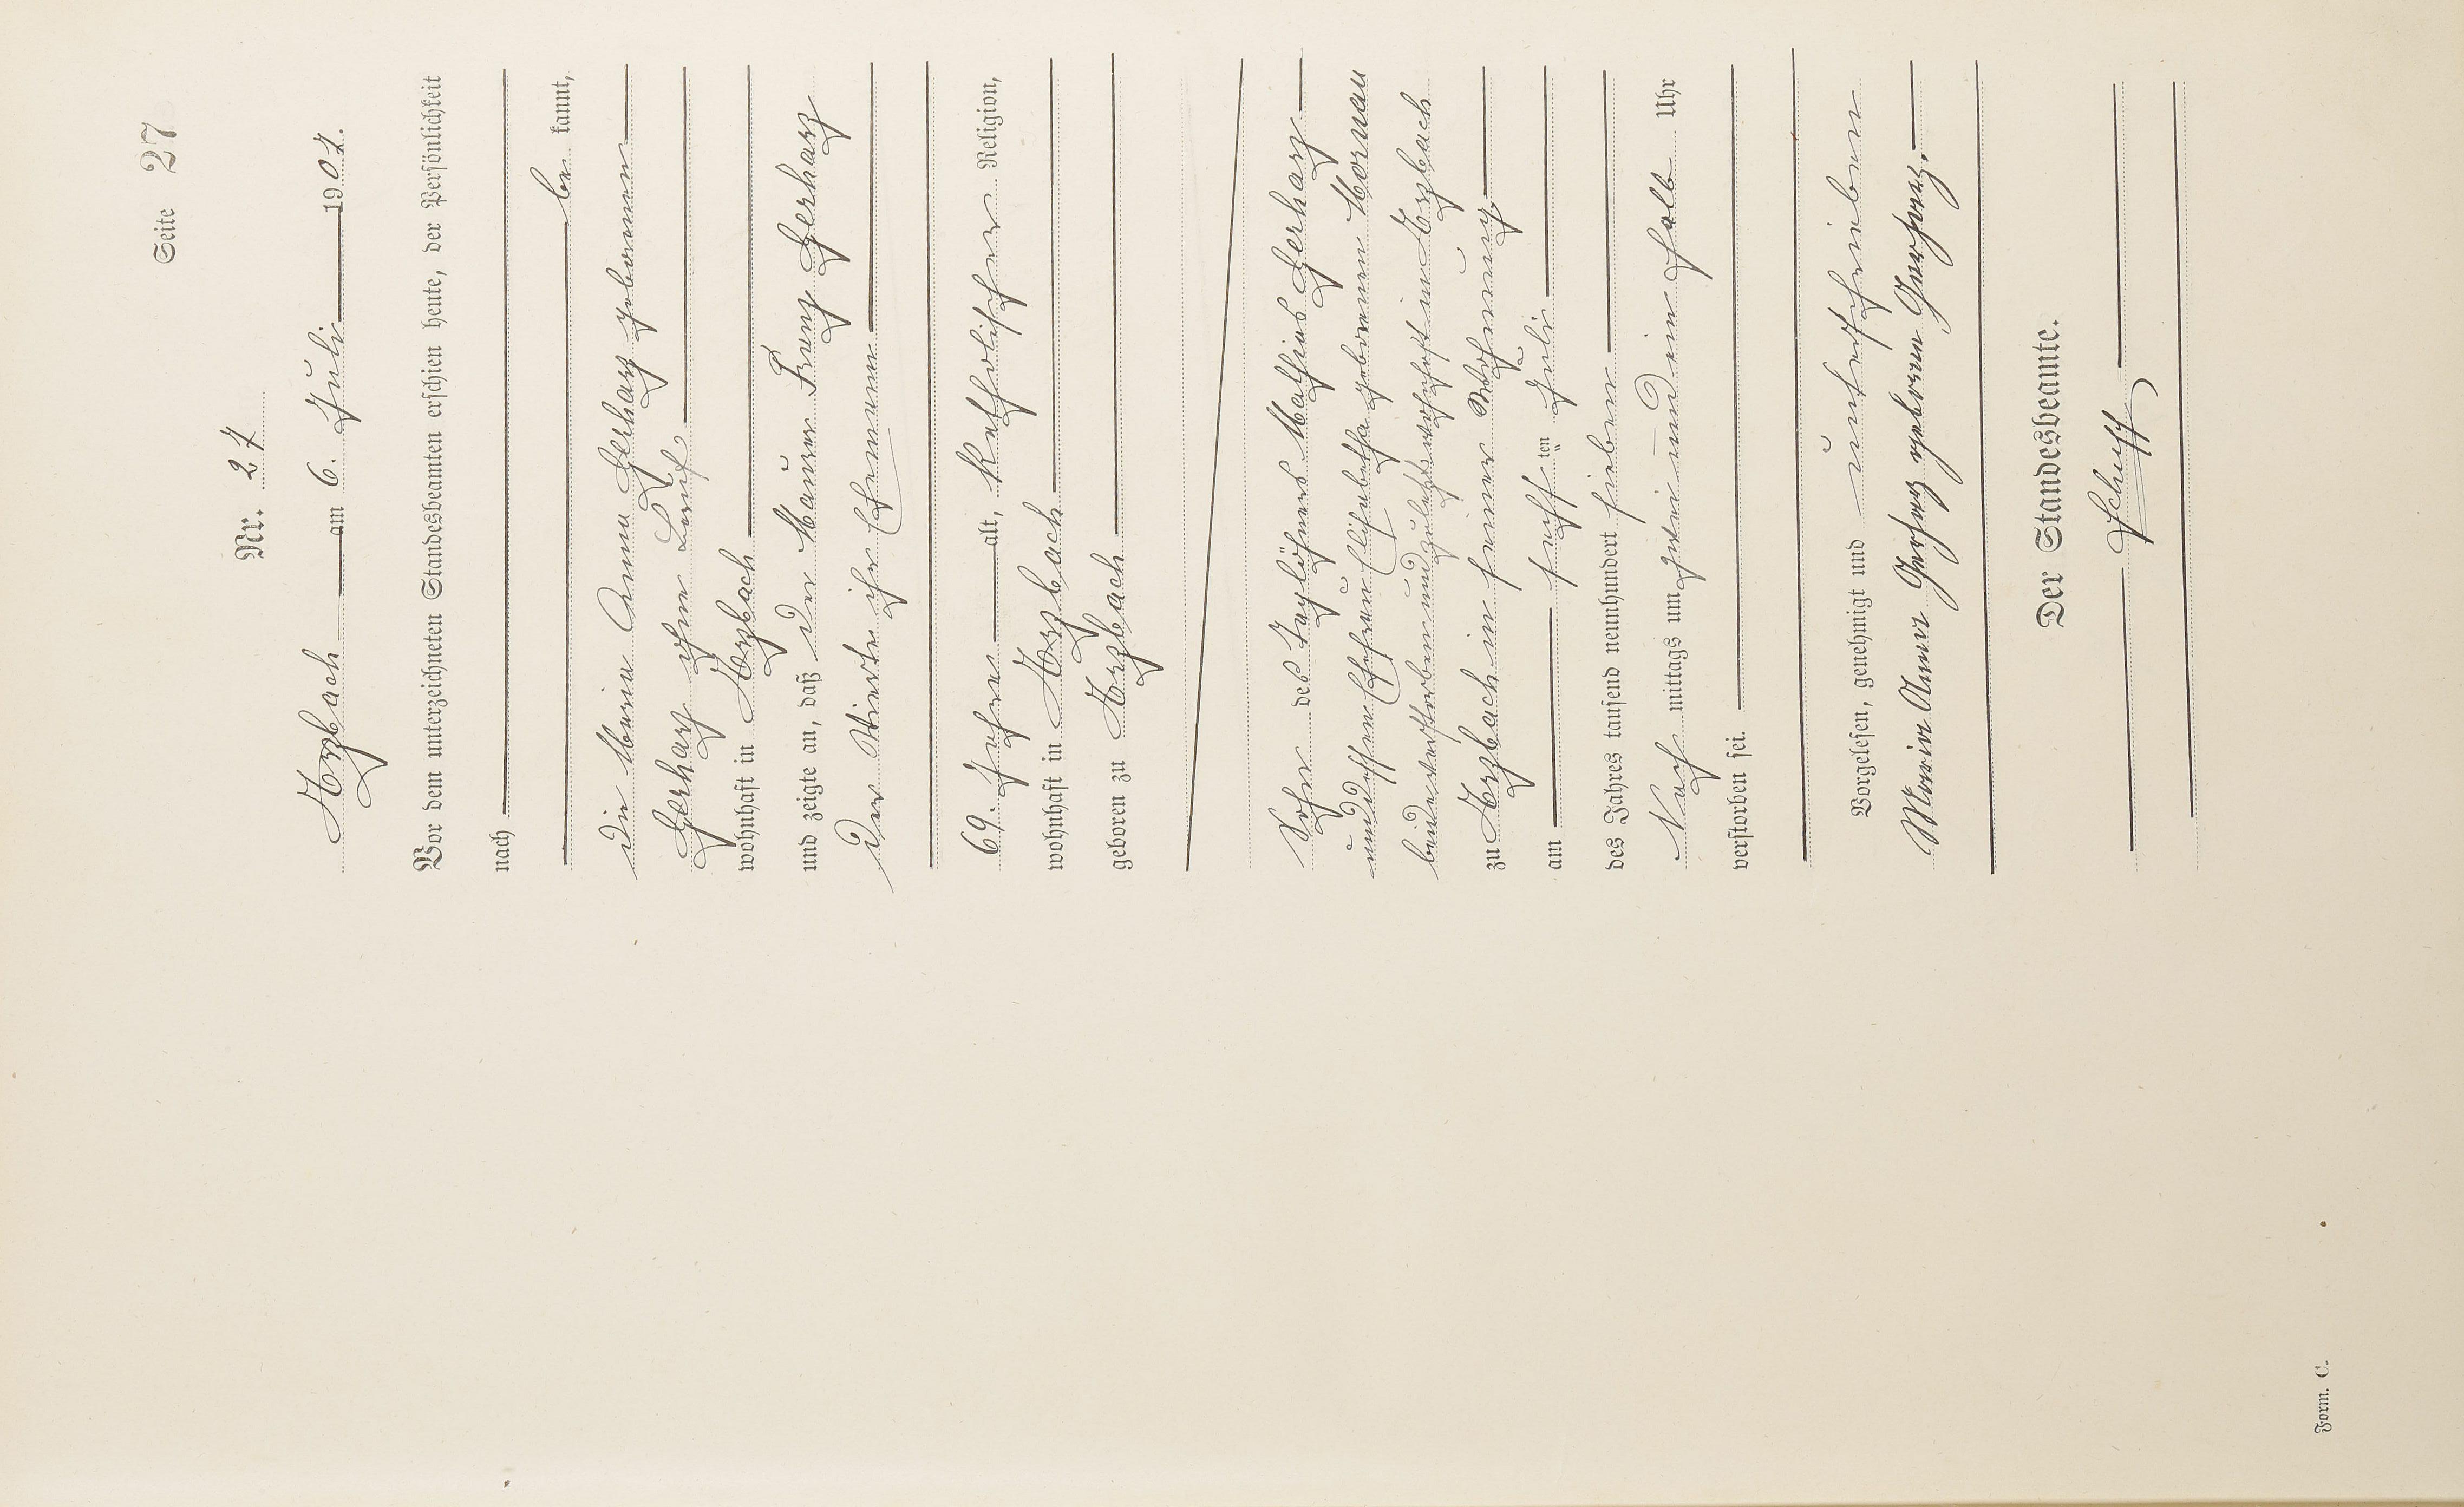 Seite 27
Nr. 27
Arzbach am 6. Juli 1907.
Vor dem unterzeichneten Standesbeamten erschien heute, der Persönlichkeit
nach
be kannt,
die Maria Anna Gerharz geborenen
Gerharz ohne Beruf
wohnhaft in Arzbach
und zeigte an, daß der Maurer Franz Gerharz
der Vierte ihr Ehemann
69. Jahre alt, Katholischer Religion,
wohnhaft in Arzbach
geboren zu Arzbach
Sohn des Taglöhners Mathias Gerharz
und dessen Ehefrau Elisabetha geborenen Mornau
beide verstorben und zuletzt wohnhaft in Arzbach
zu Arzbach in seiner Wohnung
am sechsten Juli
des Jahres tausend neunhundert sieben
Nach mittags um zwei und ein halb Uhr
verstorben sei.
Vorgelesen, genehmigt und unterschrieben
Maria Anna Gerharz geborene Gerharz.
Der Standesbeamte.
Form. C.